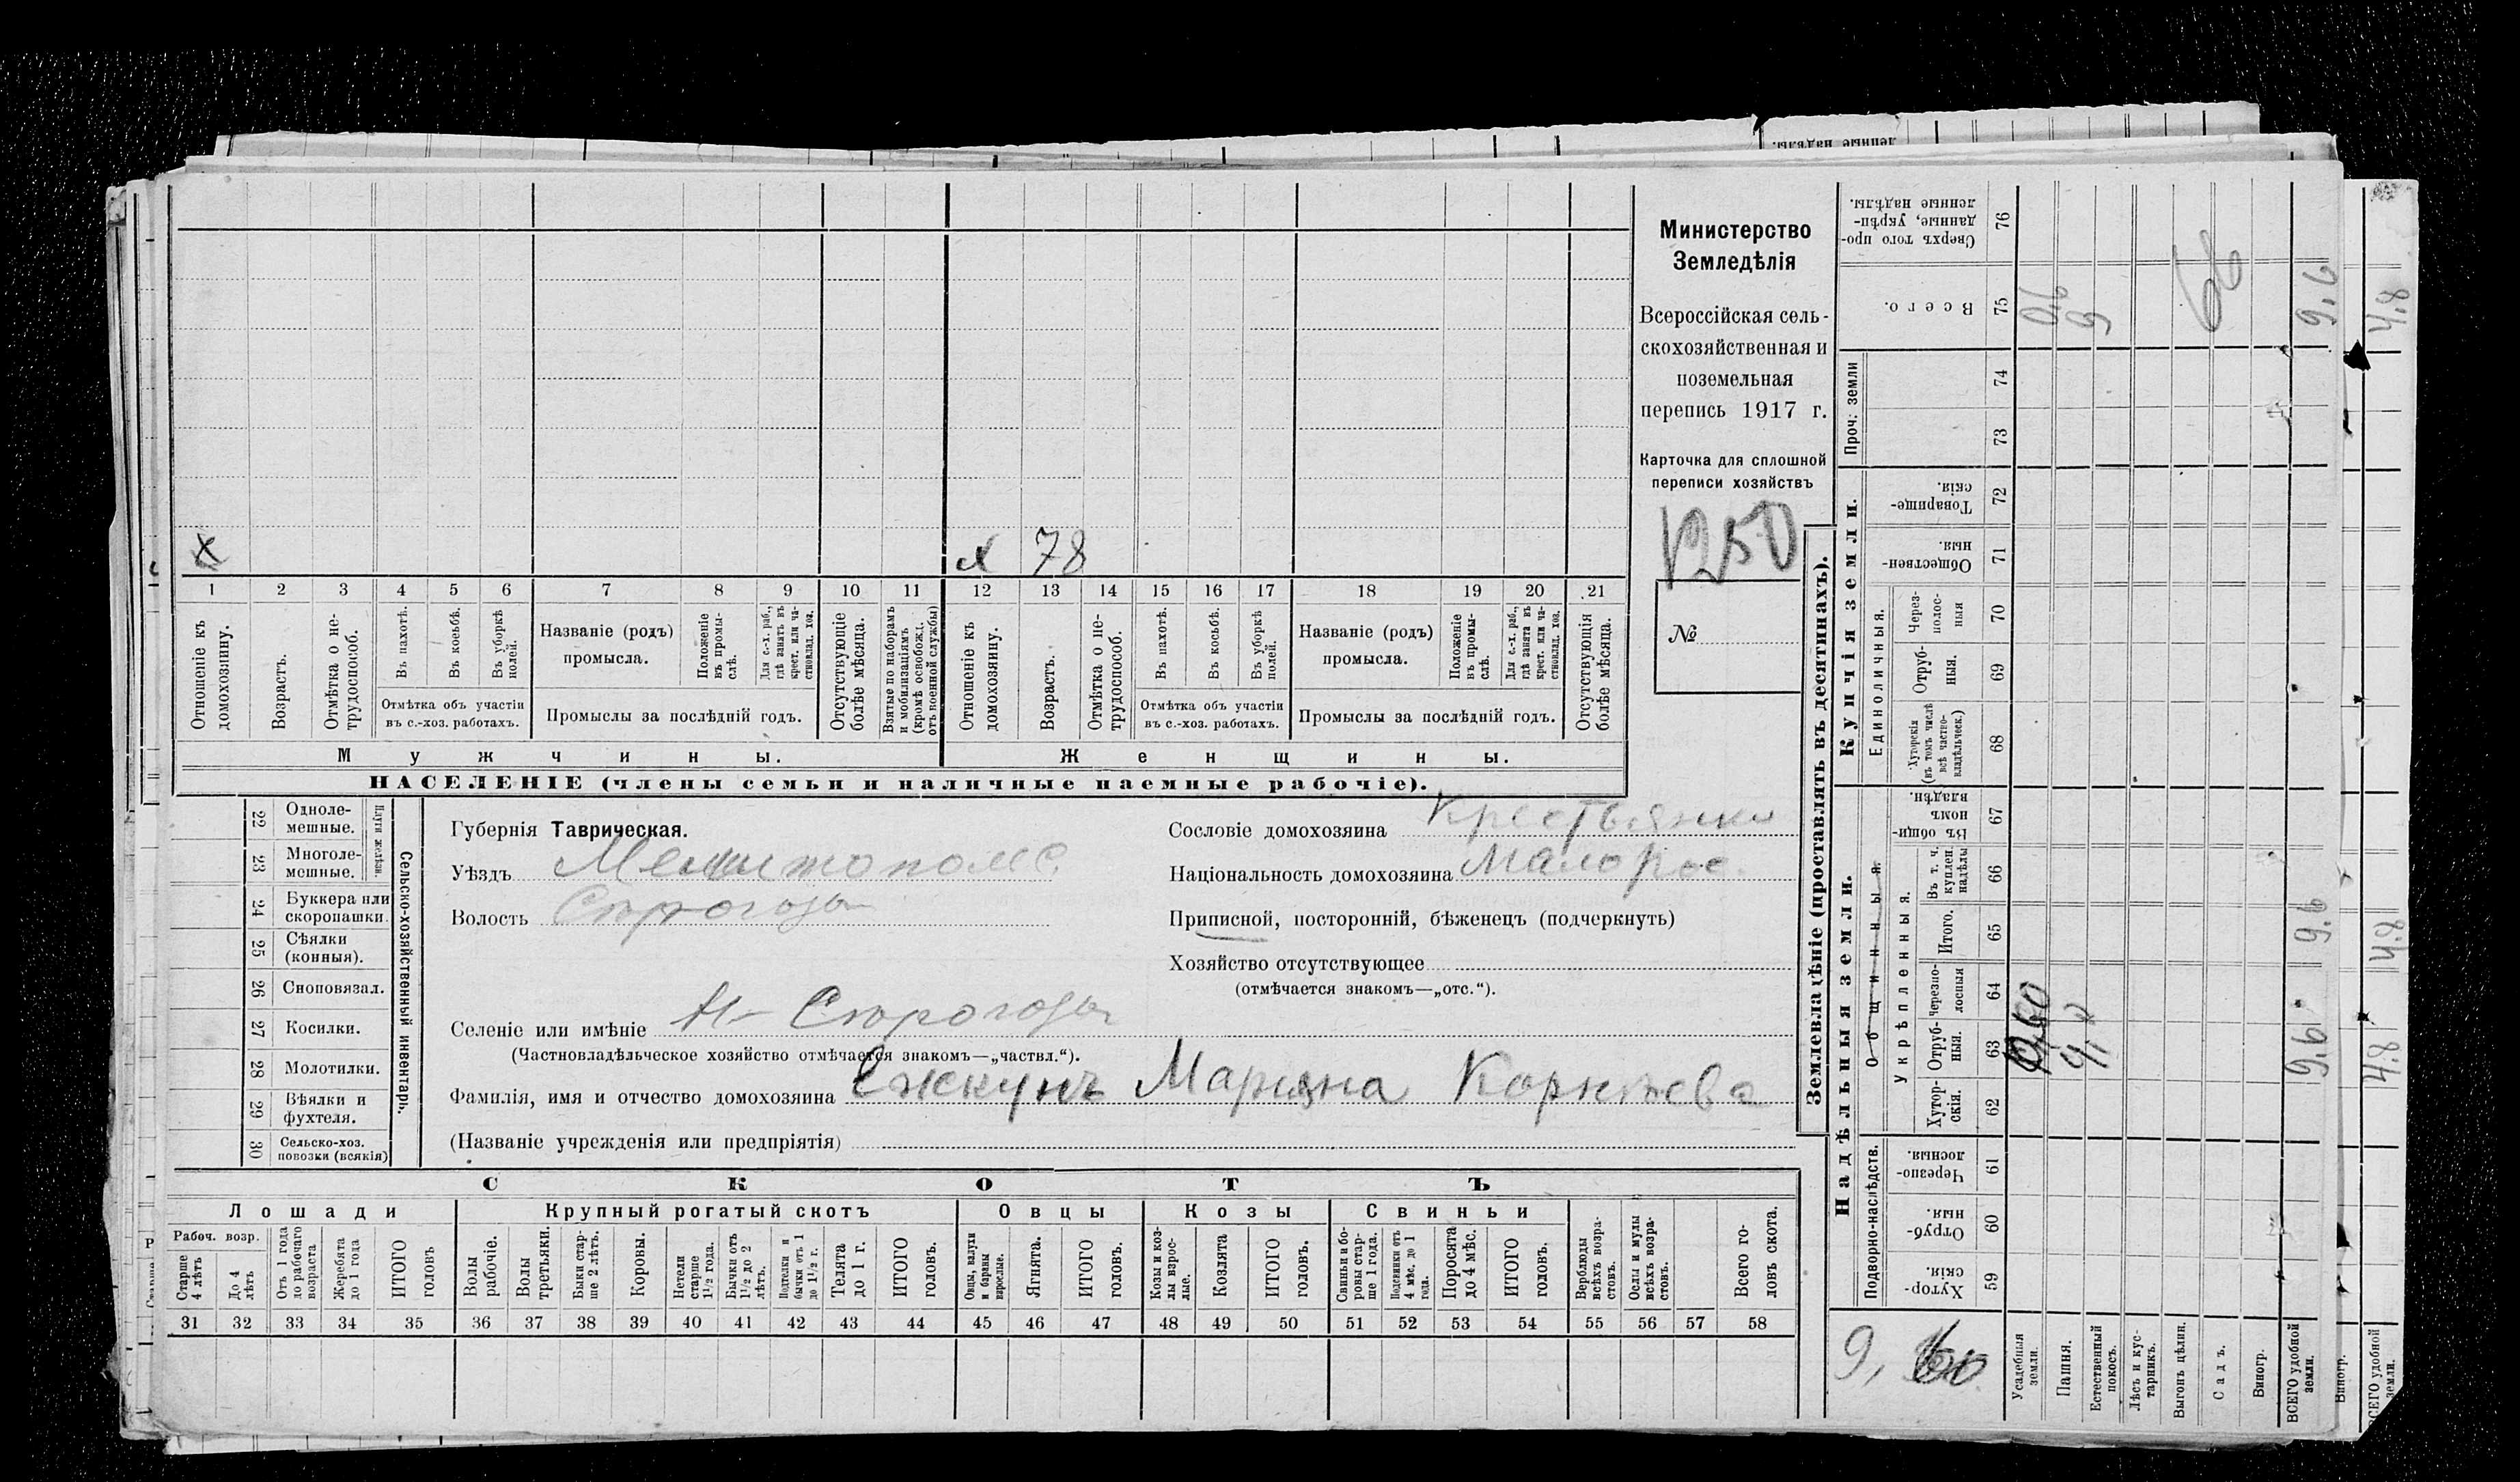 Министерство
Земледѣлія
Всероссійская сель-
скохозяйственная и
поземельная
перепись 1917 г.
Карточка для сплошной
переписи хозяйствъ
1250
№
х х 78
1 2 3 4 5 6 7 8 9 10 11 12 13 14 15 16 17 18 19 20 21
Отношеніе къ домохозяину.
Возрастъ.
Отмѣтка о не-трудоспособ.
Въ пахотѣ.
Въ косьбѣ.
Въ уборкѣ полей.
Отмѣтка объ участіи
въ с.-хоз. работахъ.
Названіе (родъ)
промысла.
Положеніе въ промы-слѣ.
Для с.-х. раб., гдѣ занятъ въ крест. или ча-стновлад. хоз.
Промыслы за послѣдній годъ.
Отсутствующіе болѣе мѣсяца.
Взятые по наборамъ и мобилизаціямъ (кромѣ освобожд. отъ военной службы)
Отношеніе къ домохозяину.
Возрастъ.
Отмѣтка о не-трудоспособ.
Въ пахотѣ.
Въ косьбѣ.
Въ уборкѣ полей.
Отмѣтка объ участіи
въ с.-хоз. работахъ.
Названіе (родъ)
промысла.
Положеніе въ промы-слѣ.
Для с.-х. раб., гдѣ занята въ крест. или ча-стновлад. хоз.
Промыслы за послѣдній годъ.
Отсутствующія болѣе мѣсяца.
Мужчины. Женщины.
НАСЕЛЕНІЕ (члены семьи и наличные наемные рабочіе).
Сельско-хозяйственный инвентарь.
Плуги желѣзн.
22 Одноле-мешные.
23 Многоле-мешные.
24 Буккера или скоропашки.
25 Сѣялки (конныя).
26 Сноповязал.
27 Косилки.
28 Молотилки.
29 Вѣялки и фухтеля.
30 Сельско-хоз. повозки (всякія)
Губернія Таврическая.
Уѣздъ
Волость
Селеніе или имѣніе
(Частновладѣльческое хозяйство отмѣчается знакомъ—„частвл.“).
Фамилія, имя и отчество домохозяина
(Названіе учрежденія или предпріятія)
Сословіе домохозяина Крестьянка
Національность домохозяина Малорос.
Приписной, посторонній, бѣженецъ (подчеркнуть)
Хозяйство отсутствующее
(отмѣчается знакомъ—„отс.“).
СКОТЪ
Лошади Крупный рогатый скотъ Овцы Козы Свиньи
Рабоч. возр.
Старше 4 лѣтъ
До 4 лѣтъ
Отъ 1 года до рабочаго возраста
Жеребята до 1 года
ИТОГО головъ
Волы рабочіе.
Волы третьяки.
Быки стар-ше 2 лѣтъ.
Коровы.
Нетели старше 1½ года.
Бычки отъ 1½ до 2 лѣтъ.
Подтелки и бычки отъ 1 до 1½ г.
Телята до 1 г.
ИТОГО головъ.
Овцы, валухи и бараны взрослые.
Ягнята.
ИТОГО головъ.
Козы и коз-лы взрос-лые.
Козлята
ИТОГО головъ.
Свиньи и бо-ровы стар-ше 1 года.
Подсвинки отъ 4 мѣс. до 1 года.
Поросята до 4 мѣс.
ИТОГО головъ.
Верблюды всѣхъ возра-стовъ.
Ослы и мулы всѣхъ возра-стовъ.
Всего го-ловъ скота.
31 32 33 34 35 36 37 38 39 40 41 42 43 44 45 46 47 48 49 50 51 52 53 54 55 56 57 58
Землевладѣніе (проставлять въ десятинахъ).
Надѣльныя земли. Купчія земли.
Проч. земли
Подворно-наслѣдств.
Общинныя.
Укрѣпленныя.
Единоличныя.
Сверхъ того про-данные, укрѣп-ленные надѣлы. 76
Всего. 75
74
73
Товарище-скія. 72
Обществен-ныя. 71
Через-полос-ныя 70
Отруб-ныя. 69
Хуторскія (въ томъ числѣ всѣ частно-владѣльческ.) 68
Въ общин-номъ владѣн. 67
Въ т. ч. куплен. надѣлы 66
Итого. 65
черезпо-лосныя 64
Отруб-ныя. 63
Хутор-скія. 62
Черезпо-лосныя. 61
Отруб-ныя. 60
Хутор-скія. 59
Усадебныя земли.
Пашня.
Естественный покосъ.
Лѣсъ и кус-тарникъ.
Выгонъ цѣлин.
Садъ.
Виногр.
ВСЕГО удобной земли.
0,6
9
66
9,6
9,6
9,6
Виногр.
ВСЕГО удобной земли.
4,8
4,8
4,8